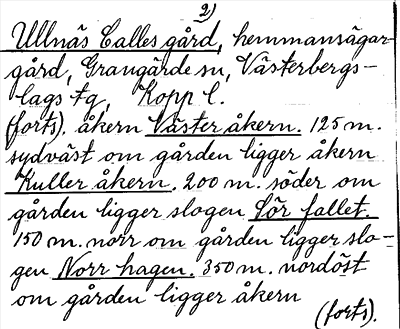 2)
Ullnäs Calles gård, hemmansägar-
gård, Grangärde sn, Västerbergs-
lags tg, Kopp l.
(forts). åkern Väster åkern. 125 m.
sydväst om gården ligger åkern
Kuller åkern. 200 m. söder om
gården ligger slogen Sör fallet.
150 m. norr om gården ligger slo-
gen Norr hagen. 350 m. nordöst
om gården ligger åkern
(forts).